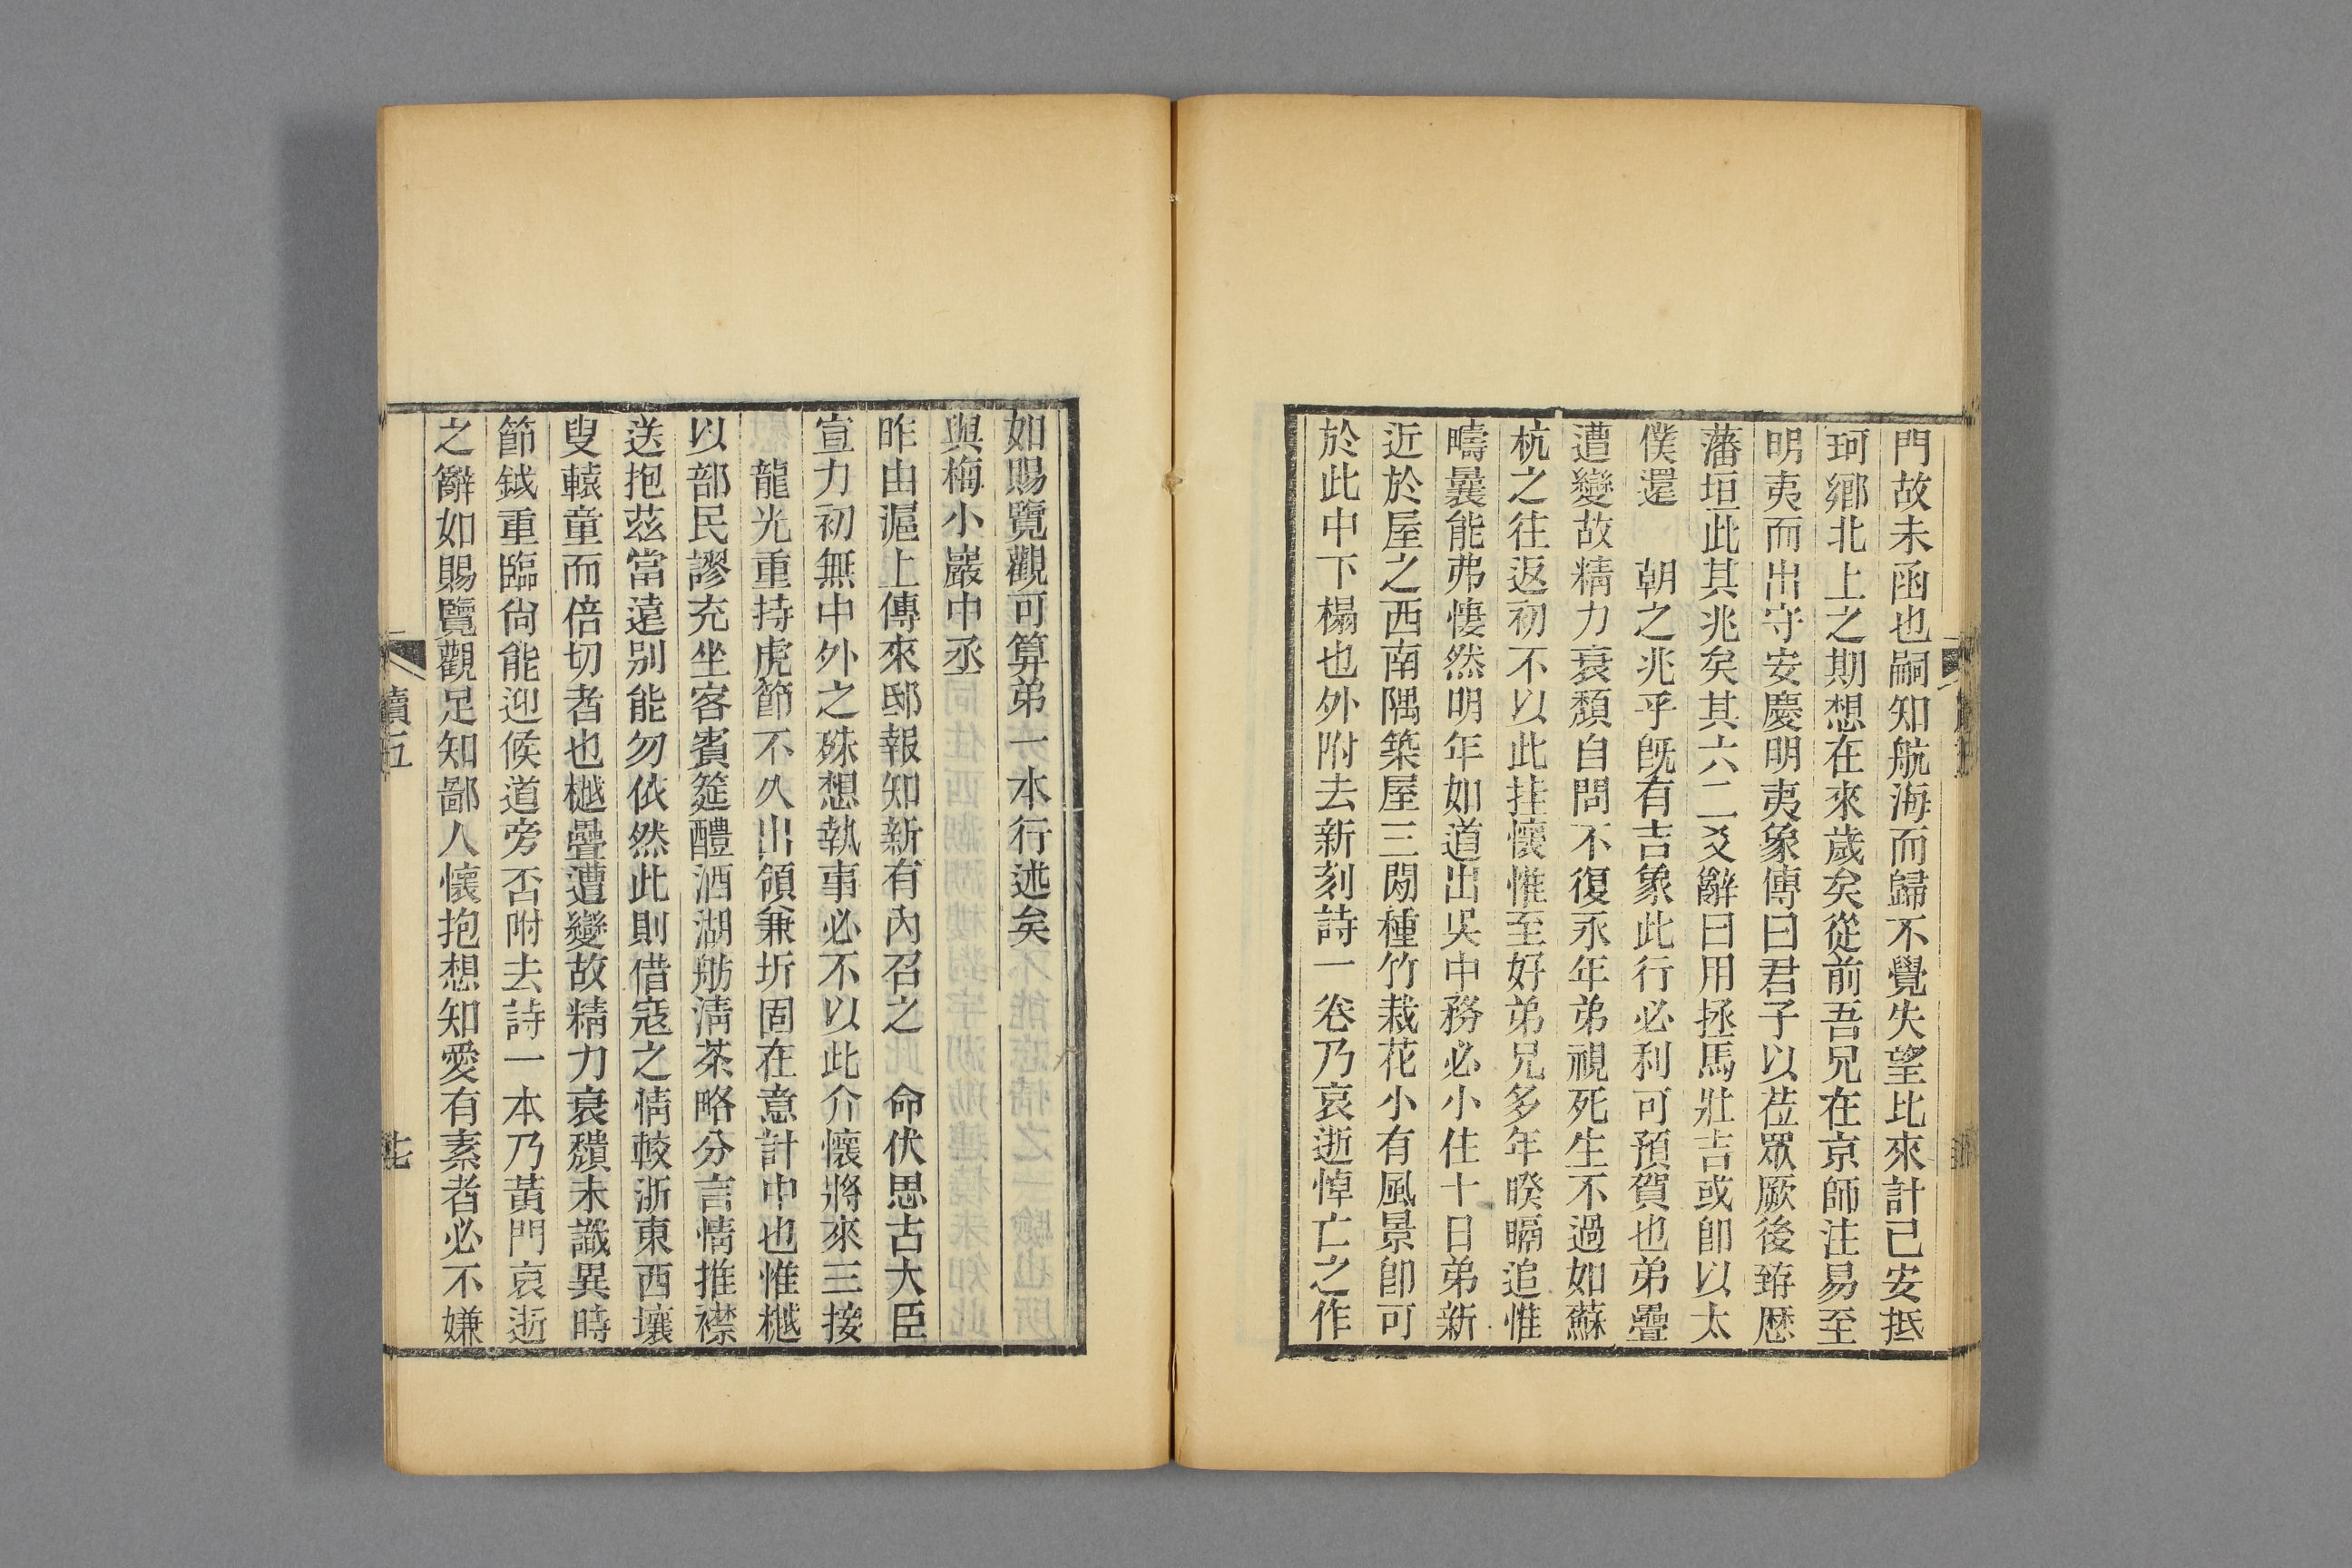 門故未函也嗣知航海而歸不覺失望比來計已安抵
珂鄉北上之期想在來歲矣從前吾兄在京師注易至
明夷而出守安慶明夷象傳曰君子以莅眾厥後荐歷
藩垣此其兆矣其六二爻辭曰用拯馬壯吉或卽以太
僕還　朝之兆乎旣有吉象此行必利可預賀也弟疊
遭變故精力衰頹自問不復永年弟視死生不過如蘇
杭之往返初不以此挂懷惟至好弟兄多年暌隔追惟
疇曩能弗悽然明年如道出吳中務必小住十日弟新
近於屋之西南隅築屋三間種竹栽花小有風景卽可
於此中下榻也外附去新刻詩一卷乃哀逝悼亡之作
如賜覽觀可算弟一本行述矣
與梅小巖中丞
昨由滬上傳來邸報知新有內召之　命伏思古大臣
宣力初無中外之殊想執事必不以此介懷將來三接
龍光重持虎節不久出領兼圻固在意計中也惟樾
以部民謬充坐客賓筵醴酒湖舫淸茶略分言情推襟
送抱茲當遠别能勿依然此則借寇之情較浙東西壤
叟轅童而倍切者也樾疊遭變故精力衰頹未識異時
節鉞重臨尙能迎候道旁否附去詩一本乃黃門哀逝
之辭如賜覽觀足知鄙人懷抱想知愛有素者必不嫌
牘五
七